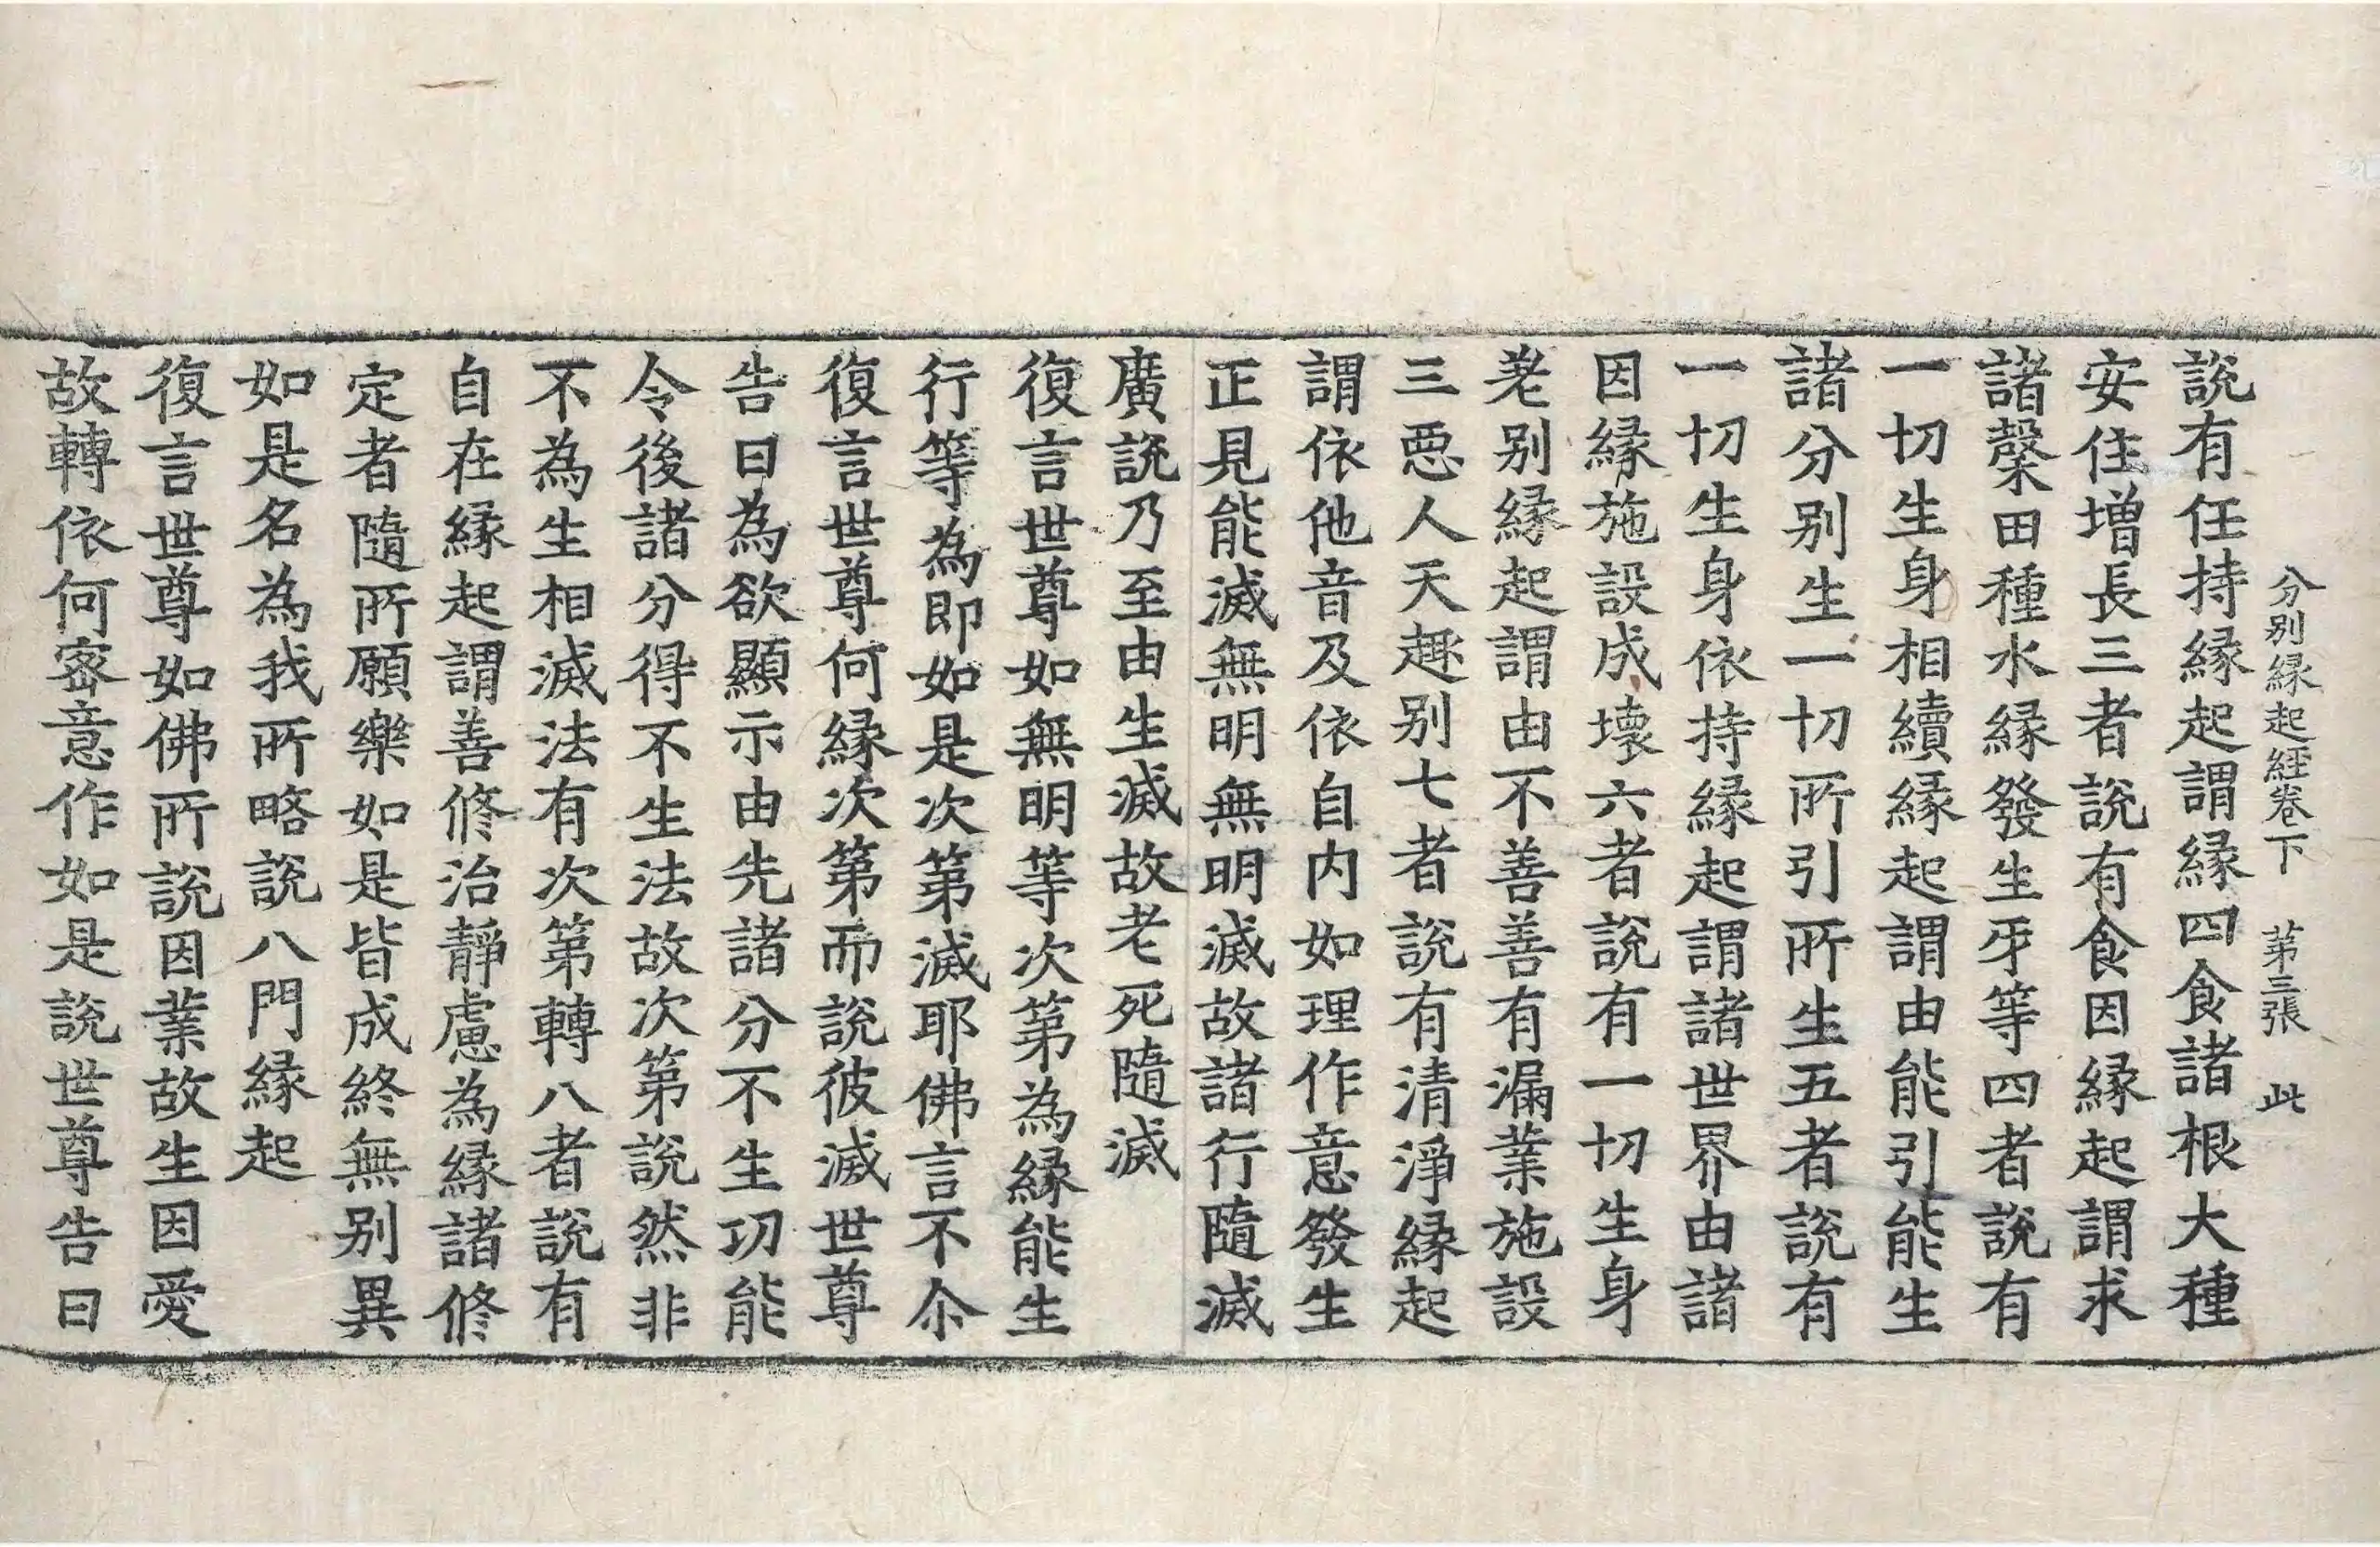 分別縁起經卷下 第三張 此
説有任持縁起謂縁四食諸根大種
安住増長三者説有食因縁起謂求
諸穀田種水縁發生牙等四者説有
一切生身相續縁起謂由能引能生
諸分別生一切所引所生五者説有
一切生身依持縁起謂諸世界由諸
因縁施設成壊六者説有一切生身
差別縁起謂由不善善有漏業施設
三惡人天趣別七者説有清淨縁起
謂依他音及依自内如理作意發生
正見能滅無明無明滅故諸行隨滅
廣説乃至由生滅故老死隨滅
復言世尊如無明等次第為縁能生
行等為即如是次第滅耶佛言不尒
復言世尊何縁次第而説彼滅世尊
告曰為欲顯示由先諸分不生功能
令後諸分得不生法故次第説然非
不為生相滅法有次第轉八者説有
自在縁起謂善修治靜慮為縁諸修
定者隨所願樂如是皆成終無別異
如是名為我所略説八門縁起
復言世尊如佛所説因業故生因愛
故轉依何密意作如是説世尊告曰